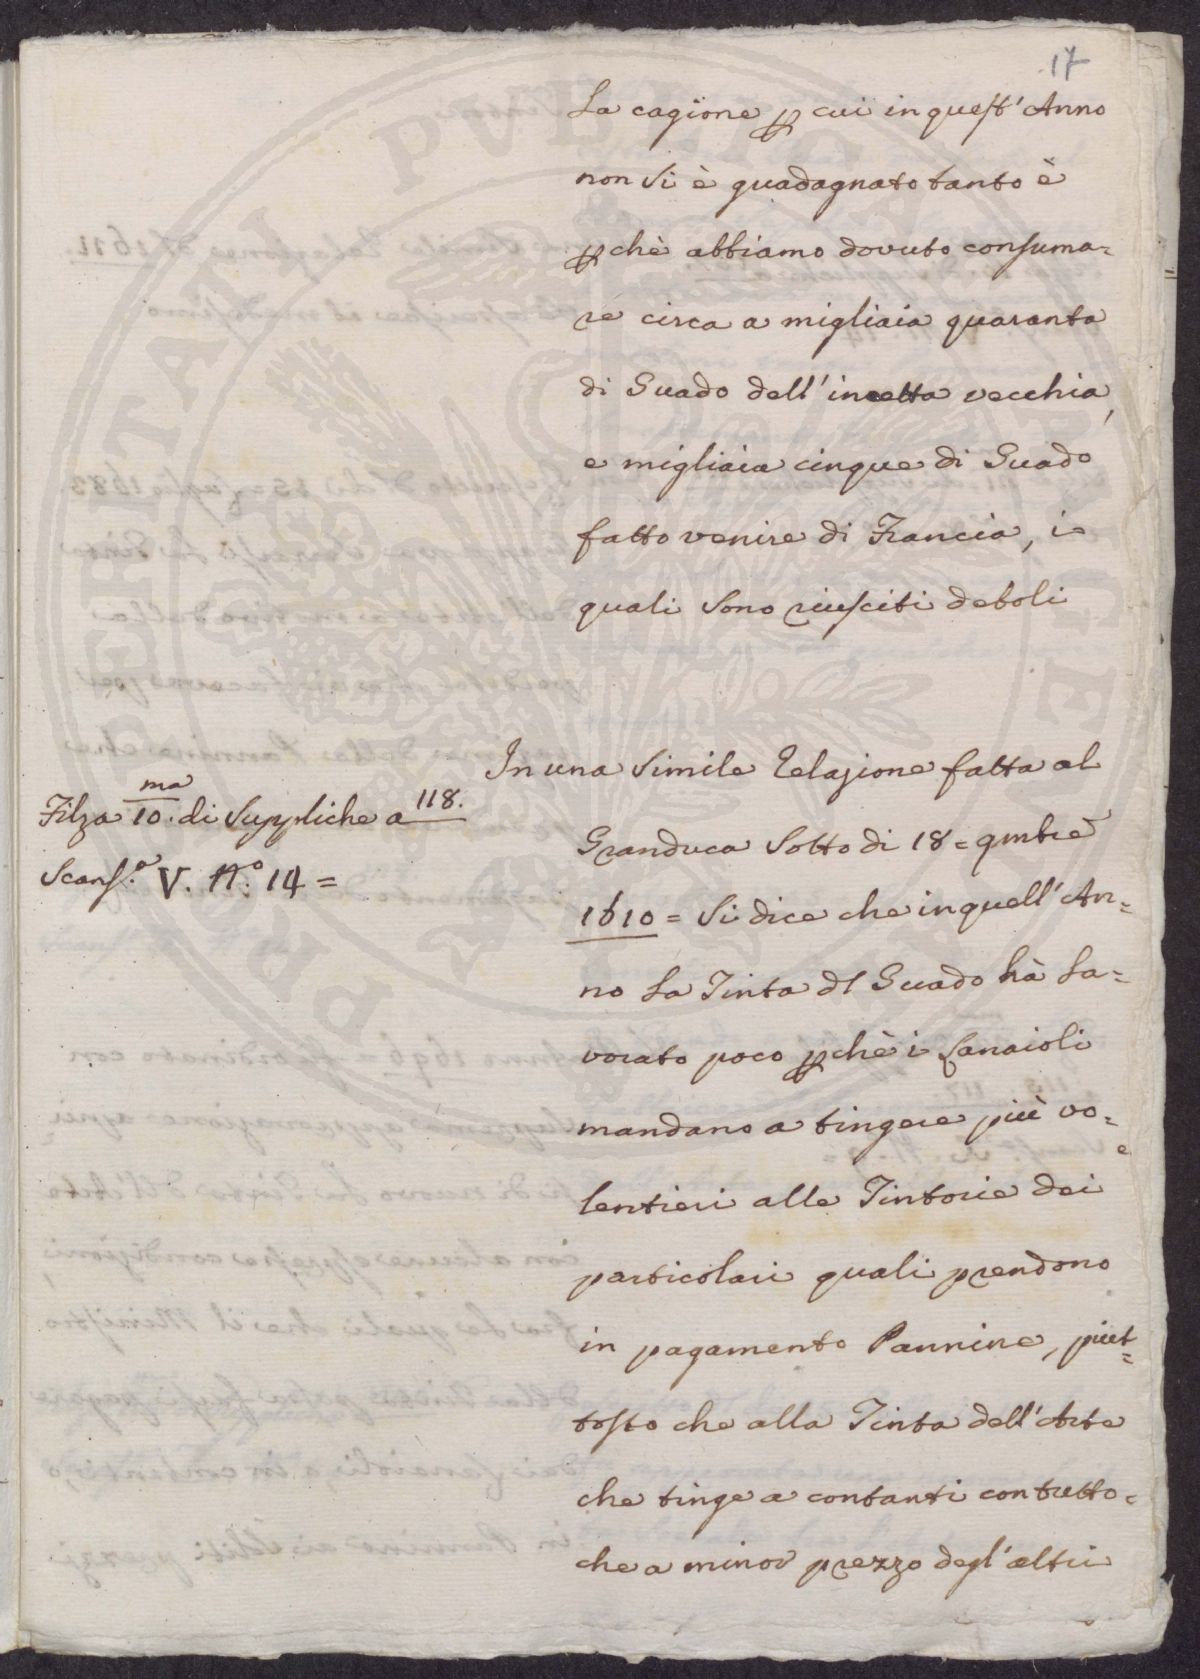 17
La cagione p cui in quest' Anno
non si è guadagnato tanto è
pchè abbiamo dovuto consuma=
re circa a migliaia quaranta
di Guado dell' incetta vecchia,
e migliaia cinque di Guado
fatto venire di Francia, i
quali sono riusciti deboli
Filza 10.ma di Suppliche a 118.
Scans.o V. N.o 14 =
In una simile Relazione fatta al
Granduca sotto di 18 = 9mbre
1610 = si dice che in quell' An=
no La Tinta dl Guado hà La=
vorato poco pchè i Lanaioli
mandano a tingere più vo=
lentieri alle Tintorie dei
particolari quali prendono
in pagamento Pannine, piut=
tosto che alla Tinta dell' Arte
che tinge a contanti contutto=
che a minor prezzo degl' altri